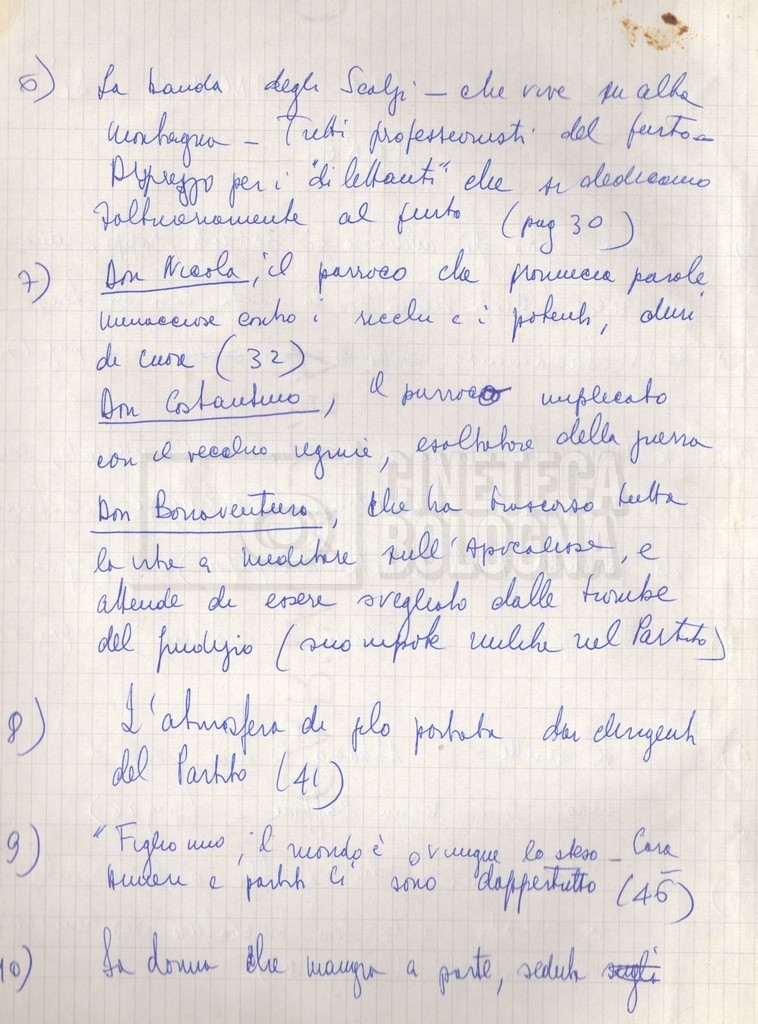 6) La banda degli Scalzi – che vive in alta
montagna – Tutti professionisti del furto –
Disprezzo per i "dilettanti" che si dedicano
saltuariamente al furto (pag 30)
7) Don Nicola, il parroco che pronuncia parole
minacciose contro i ricchi e i potenti, duri
di cuore (32)
Don Costantino, il parroco implicato
con il vecchio regime, esaltatore della guerra
Don Bonaventura, che ha trascorso tutta
la vita a meditare sull'Apocalisse, e
attende di essere svegliato dalle trombe
del giudizio (suo nipote milita nel Partito)
8) L'atmosfera di gelo portata dai dirigenti
del Partito (41)
9) "Figlio mio, il mondo è ovunque lo stesso – Carabinieri
e partiti ci sono dappertutto (45)
10) La donna che mangia a parte, seduta
CINETECA
BOLOGNA